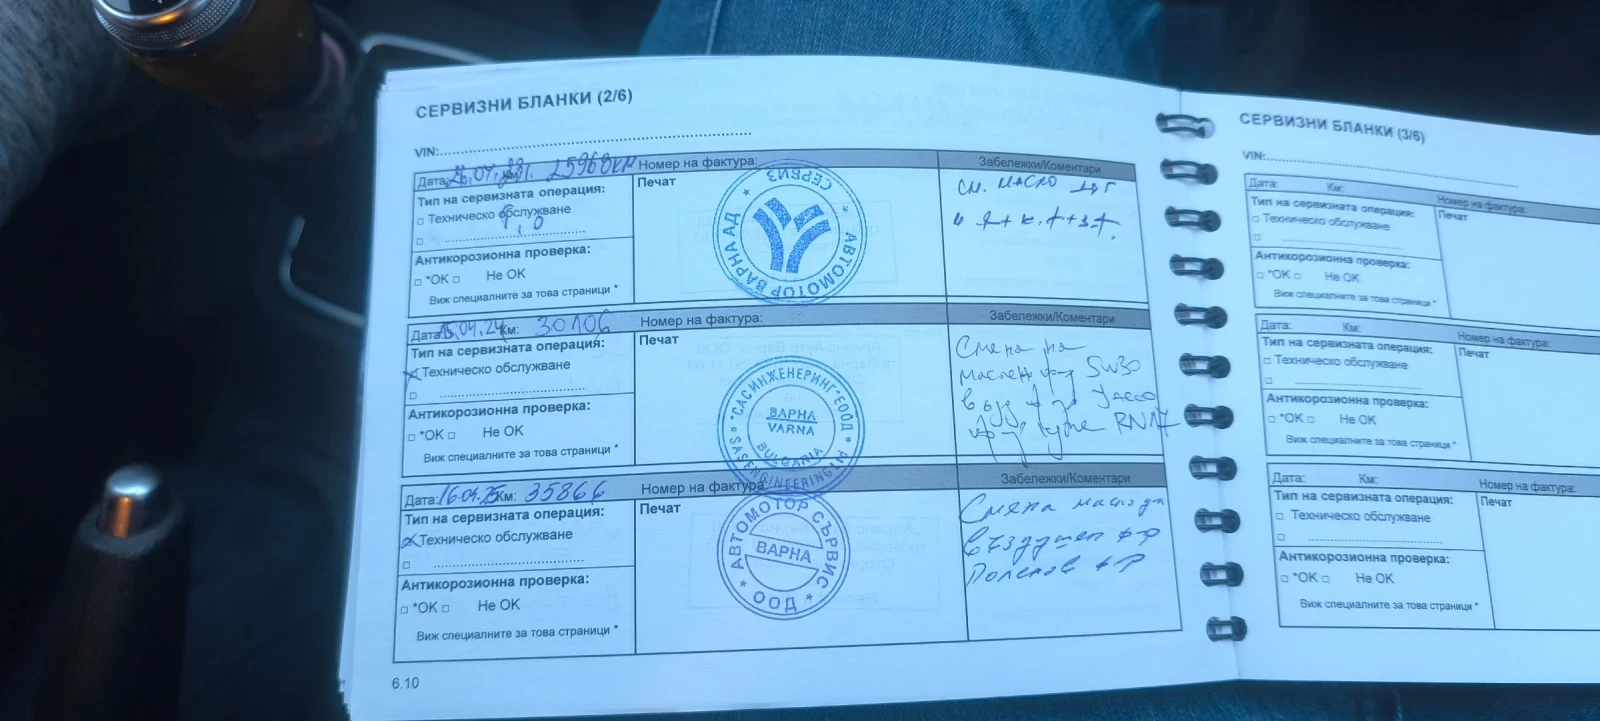 СЕРВИЗНИ БЛАНКИ (2/6)
VIN:
Дата: 25968км Номер на фактура: Забележки/Коментари
Тип на сервизната операция:
Техническо обслужване
Антикорозионна проверка:
*ОК Не ОК
Виж специалните за това страници *
Печат
АВТОМОТОР ВАРНА АД * СЕРВИЗ *
см. масло
Дата: 15.04.24 Км: 30106 Номер на фактура: Забележки/Коментари
Тип на сервизната операция:
Техническо обслужване
Антикорозионна проверка:
*ОК Не ОК
Виж специалните за това страници *
Печат
"САСИНЖЕНЕРИНГ" ЕООД
ВАРНА
VARNA
BULGARIA
"SASENGINEERING" LTD
Смяна на
5W30
RN17
Дата: 16.04.25 Км: 35866 Номер на фактура: Забележки/Коментари
Тип на сервизната операция:
Техническо обслужване
Антикорозионна проверка:
*ОК Не ОК
Виж специалните за това страници *
Печат
АВТОМОТОР СЪРВИС
ВАРНА
* ООД *
Смяна
въздушен ф-р
Поленов ф-р
6.10
СЕРВИЗНИ БЛАНКИ (3/6)
VIN:
Дата: Км: Номер на фактура:
Тип на сервизната операция:
Техническо обслужване
Антикорозионна проверка:
*ОК Не ОК
Виж специалните за това страници *
Печат
Дата: Км: Номер на фактура:
Тип на сервизната операция:
Техническо обслужване
Антикорозионна проверка:
*ОК Не ОК
Виж специалните за това страници *
Печат
Дата: Км: Номер на фактура:
Тип на сервизната операция:
Техническо обслужване
Антикорозионна проверка:
*ОК Не ОК
Виж специалните за това страници *
Печат